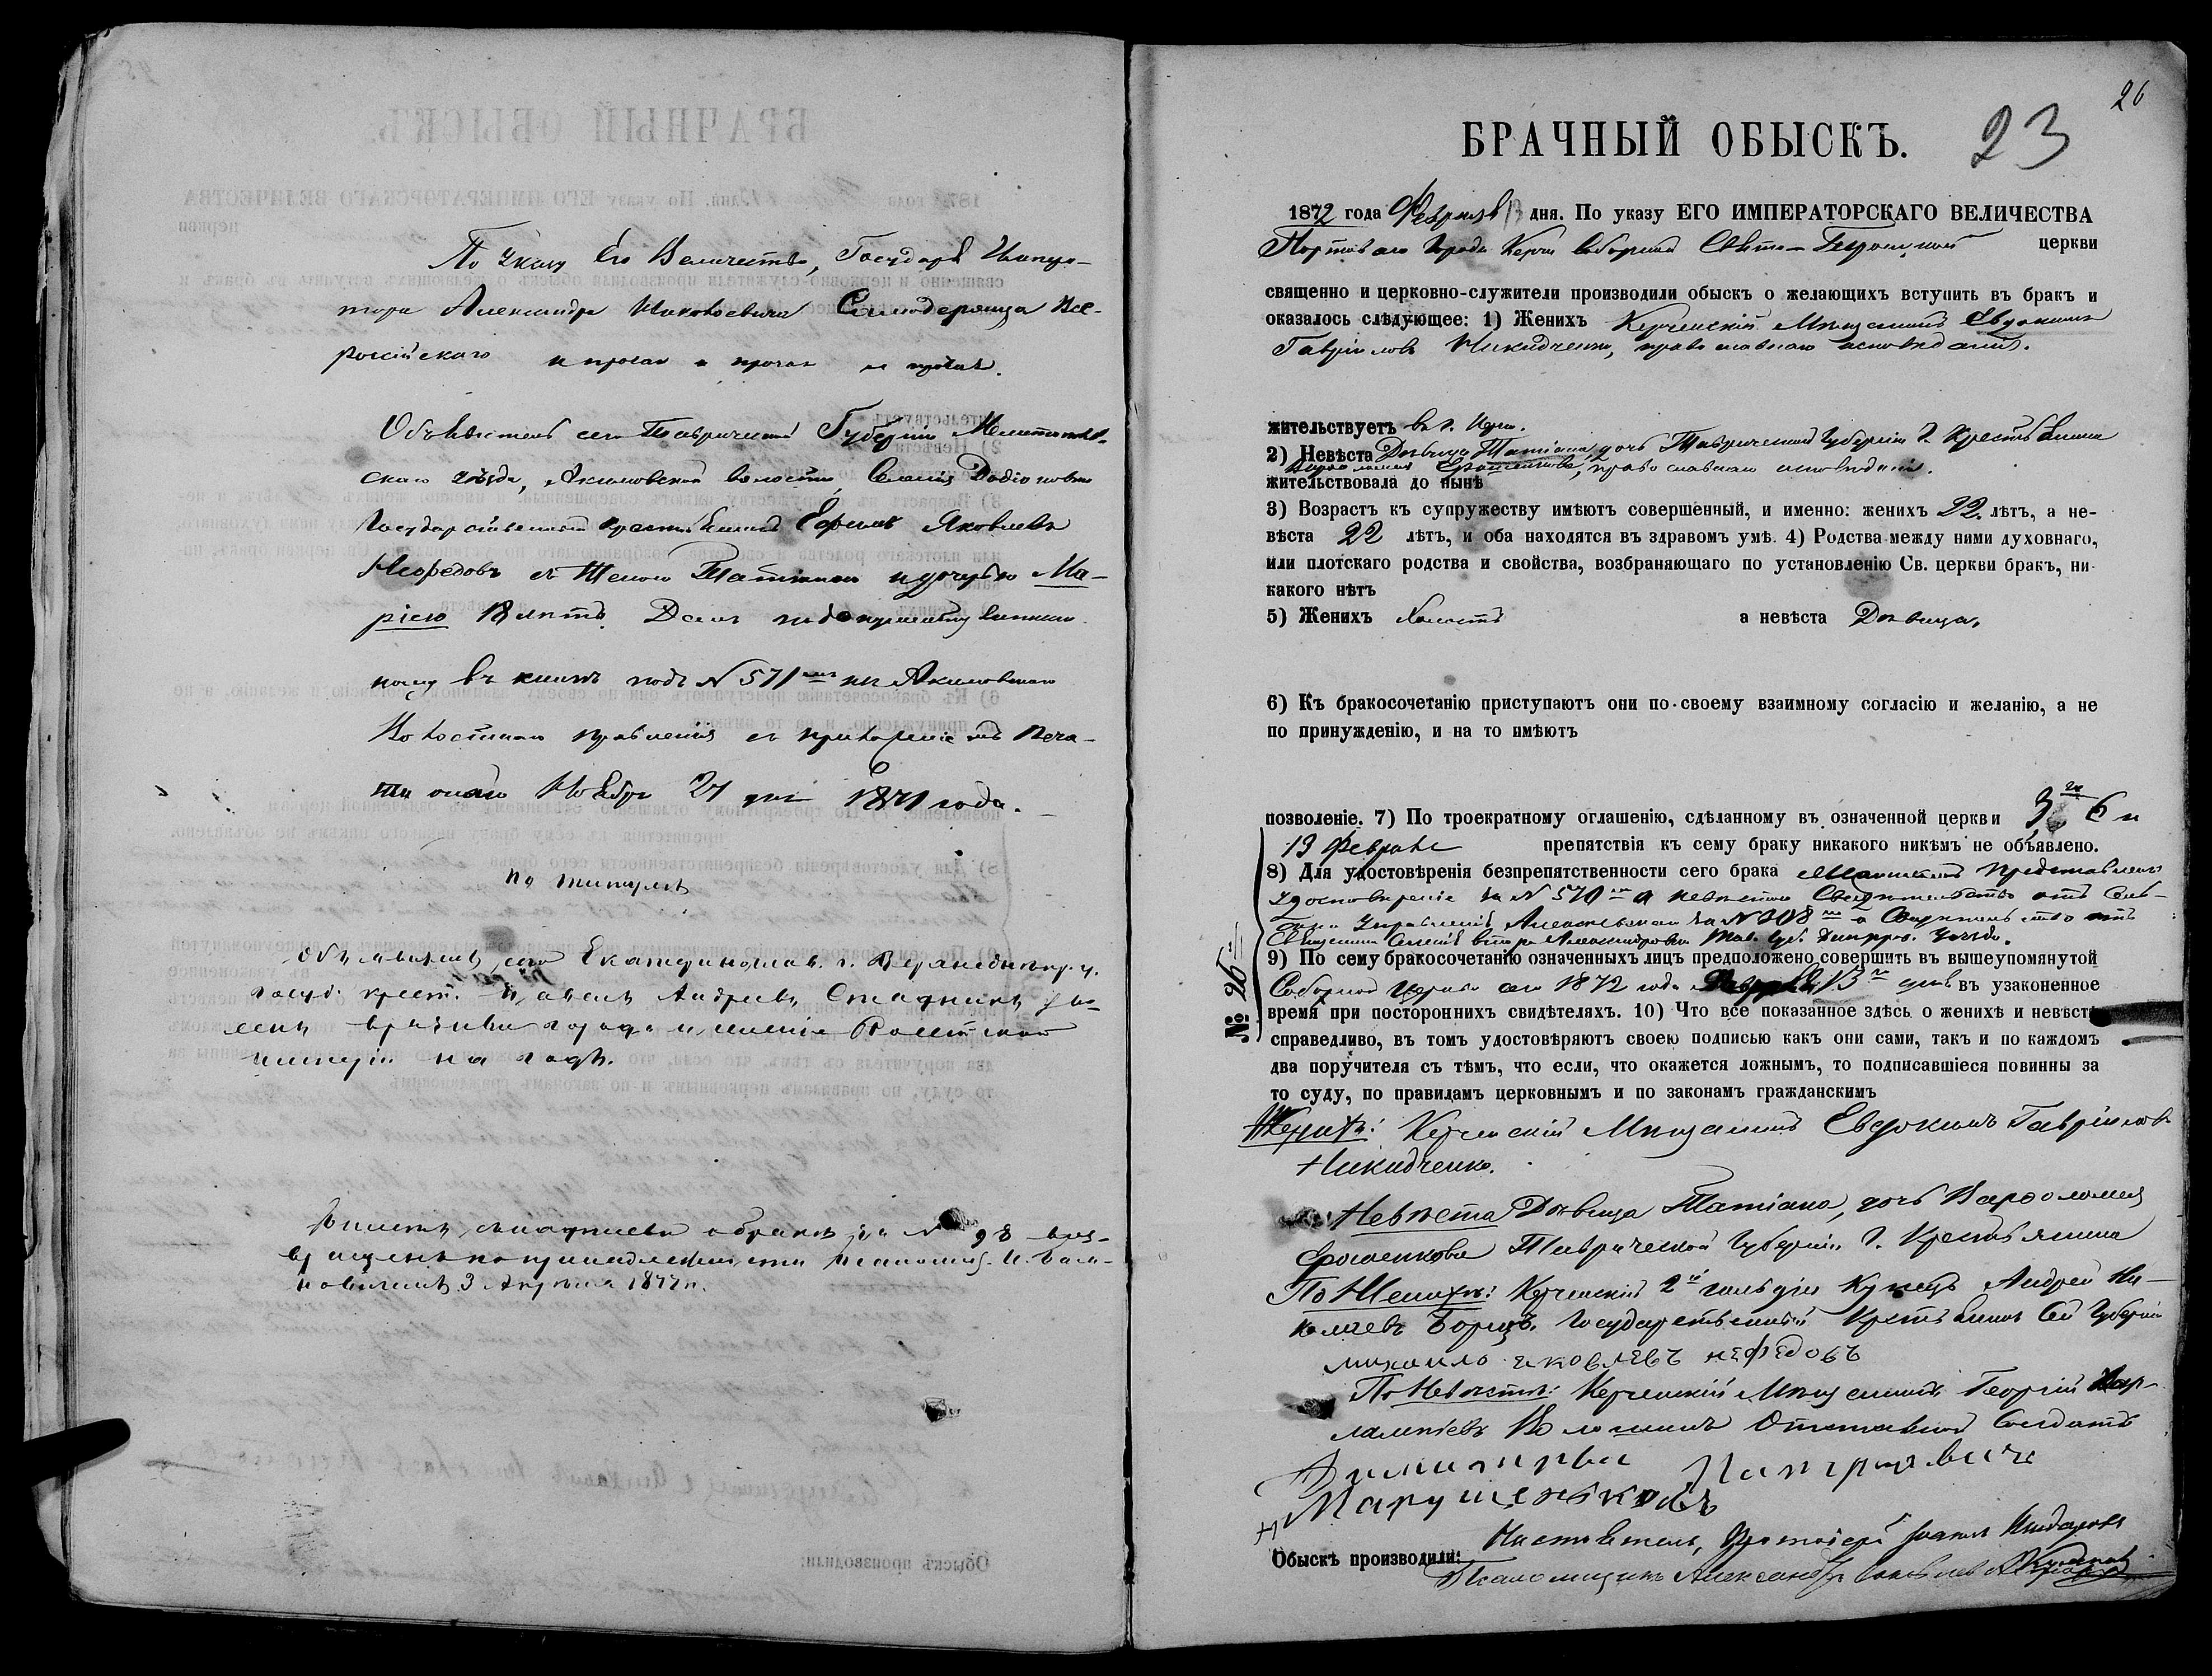 По Указу Его Величества, Государя Импера-
тора Александра Николаевича Самодержца Все-
россійскаго и прочая и прочая и прочая.
Объявитель сего Таврической Губерніи Мелитополь-
скаго уѣзда, Акимовской волости, Селенія
Государственный крестьянинъ Ефимъ Яковлевъ
Нефедовъ съ Женою Татьяною и дочерью Ма-
ріею 18 лѣтъ. Данъ
ному въ книгѣ подъ № 571 изъ Акимовскаго
Волостнаго правленія съ приложеніемъ печа-
ти онаго Ноября 27 дня 1871 года.
По титулѣ
Объявитель сего Екатеринослав. г. Верхнеднѣпр. у.
госуд. крест. Андреевъ уво-
ленъ въ разные города и селенія Россійской
имперіи на годъ.
Билетъ съ надписью о бракѣ за № 98 воз-
вращенъ по принадлежности
3 Апрѣля 1877 г.
26
23
БРАЧНЫЙ ОБЫСКЪ.
1872 года Февраля 13 дня. По указу ЕГО ИМПЕРАТОРСКАГО ВЕЛИЧЕСТВА
Портоваго города Керчи Соборной Свято-Троицкой церкви
священно и церковно-служители производили обыскъ о желающихъ вступить въ бракъ и
оказалось слѣдующее: 1) Женихъ Керченскій Мѣщанинъ Евдокимъ
Гавріиловъ Никидченко, православнаго исповѣданія.
жительствуетъ въ г. Керчи.
2) Невѣста Дѣвица Татіана, дочь Таврической Губерніи Г. Крестьянина
Варфоломея православнаго исповѣданія.
жительствовала до нынѣ
3) Возрастъ къ супружеству имѣютъ совершенный, и именно: женихъ 22 лѣтъ, а не-
вѣста 22 лѣтъ, и оба находятся въ здравомъ умѣ. 4) Родства между ними духовнаго,
или плотскаго родства и свойства, возбраняющаго по установленію Св. церкви бракъ, ни-
какого нѣтъ
5) Женихъ Холостъ а невѣста Дѣвица.
6) Къ бракосочетанію приступаютъ они по своему взаимному согласію и желанію, а не
по принужденію, и на то имѣютъ
позволеніе. 7) По троекратному оглашенію, сдѣланному въ означенной церкви 3го 6 и
13 Февраля препятствія къ сему браку никакого никѣмъ не объявлено.
8) Для удостовѣренія безпрепятственности сего брака представлено
удостовѣреніе за № 570 а невѣстою Свидѣтельство отъ Сель-
скаго Управленія за № 308 и Свидѣтельство отъ
Священника Тав. Губ. Днѣпров. Уѣзда.
№ 26
9) По сему бракосочетанію означенныхъ лицъ предположено совершить въ вышеупомянутой
Соборной Церкви сего 1872 года Февраля 13 дня въ узаконенное
время при постороннихъ свидѣтеляхъ. 10) Что все показанное здѣсь о женихѣ и невѣстѣ
справедливо, въ томъ удостовѣряютъ своею подписью какъ они сами, такъ и по каждомъ
два поручителя съ тѣмъ, что если, что окажется ложнымъ, то подписавшіеся повинны за
то суду, по правидамъ церковнымъ и по законамъ гражданскимъ
Женихъ: Керченскій Мѣщанинъ Евдокимъ Гавріиловъ
Никидченко.
Невѣста Дѣвица Татіана, дочь Варфоломея
Таврической Губерніи Г. Крестьянина
По Женихѣ: Керченскій 2й гильдіи Купецъ Андрей Ни-
колаевъ Борщъ. Государственный Крестьянинъ Сей Губерніи
михаило яковлевъ нефедовъ
По Невѣстѣ: Керченскій Мѣщанинъ Георгій Хар-
лампіевъ Волошинъ Отставной Солдатъ
Марущеньковъ
Обыскъ производили: Настоятель, Протоіерей Іоаннъ
Псаломщикъ Александръ